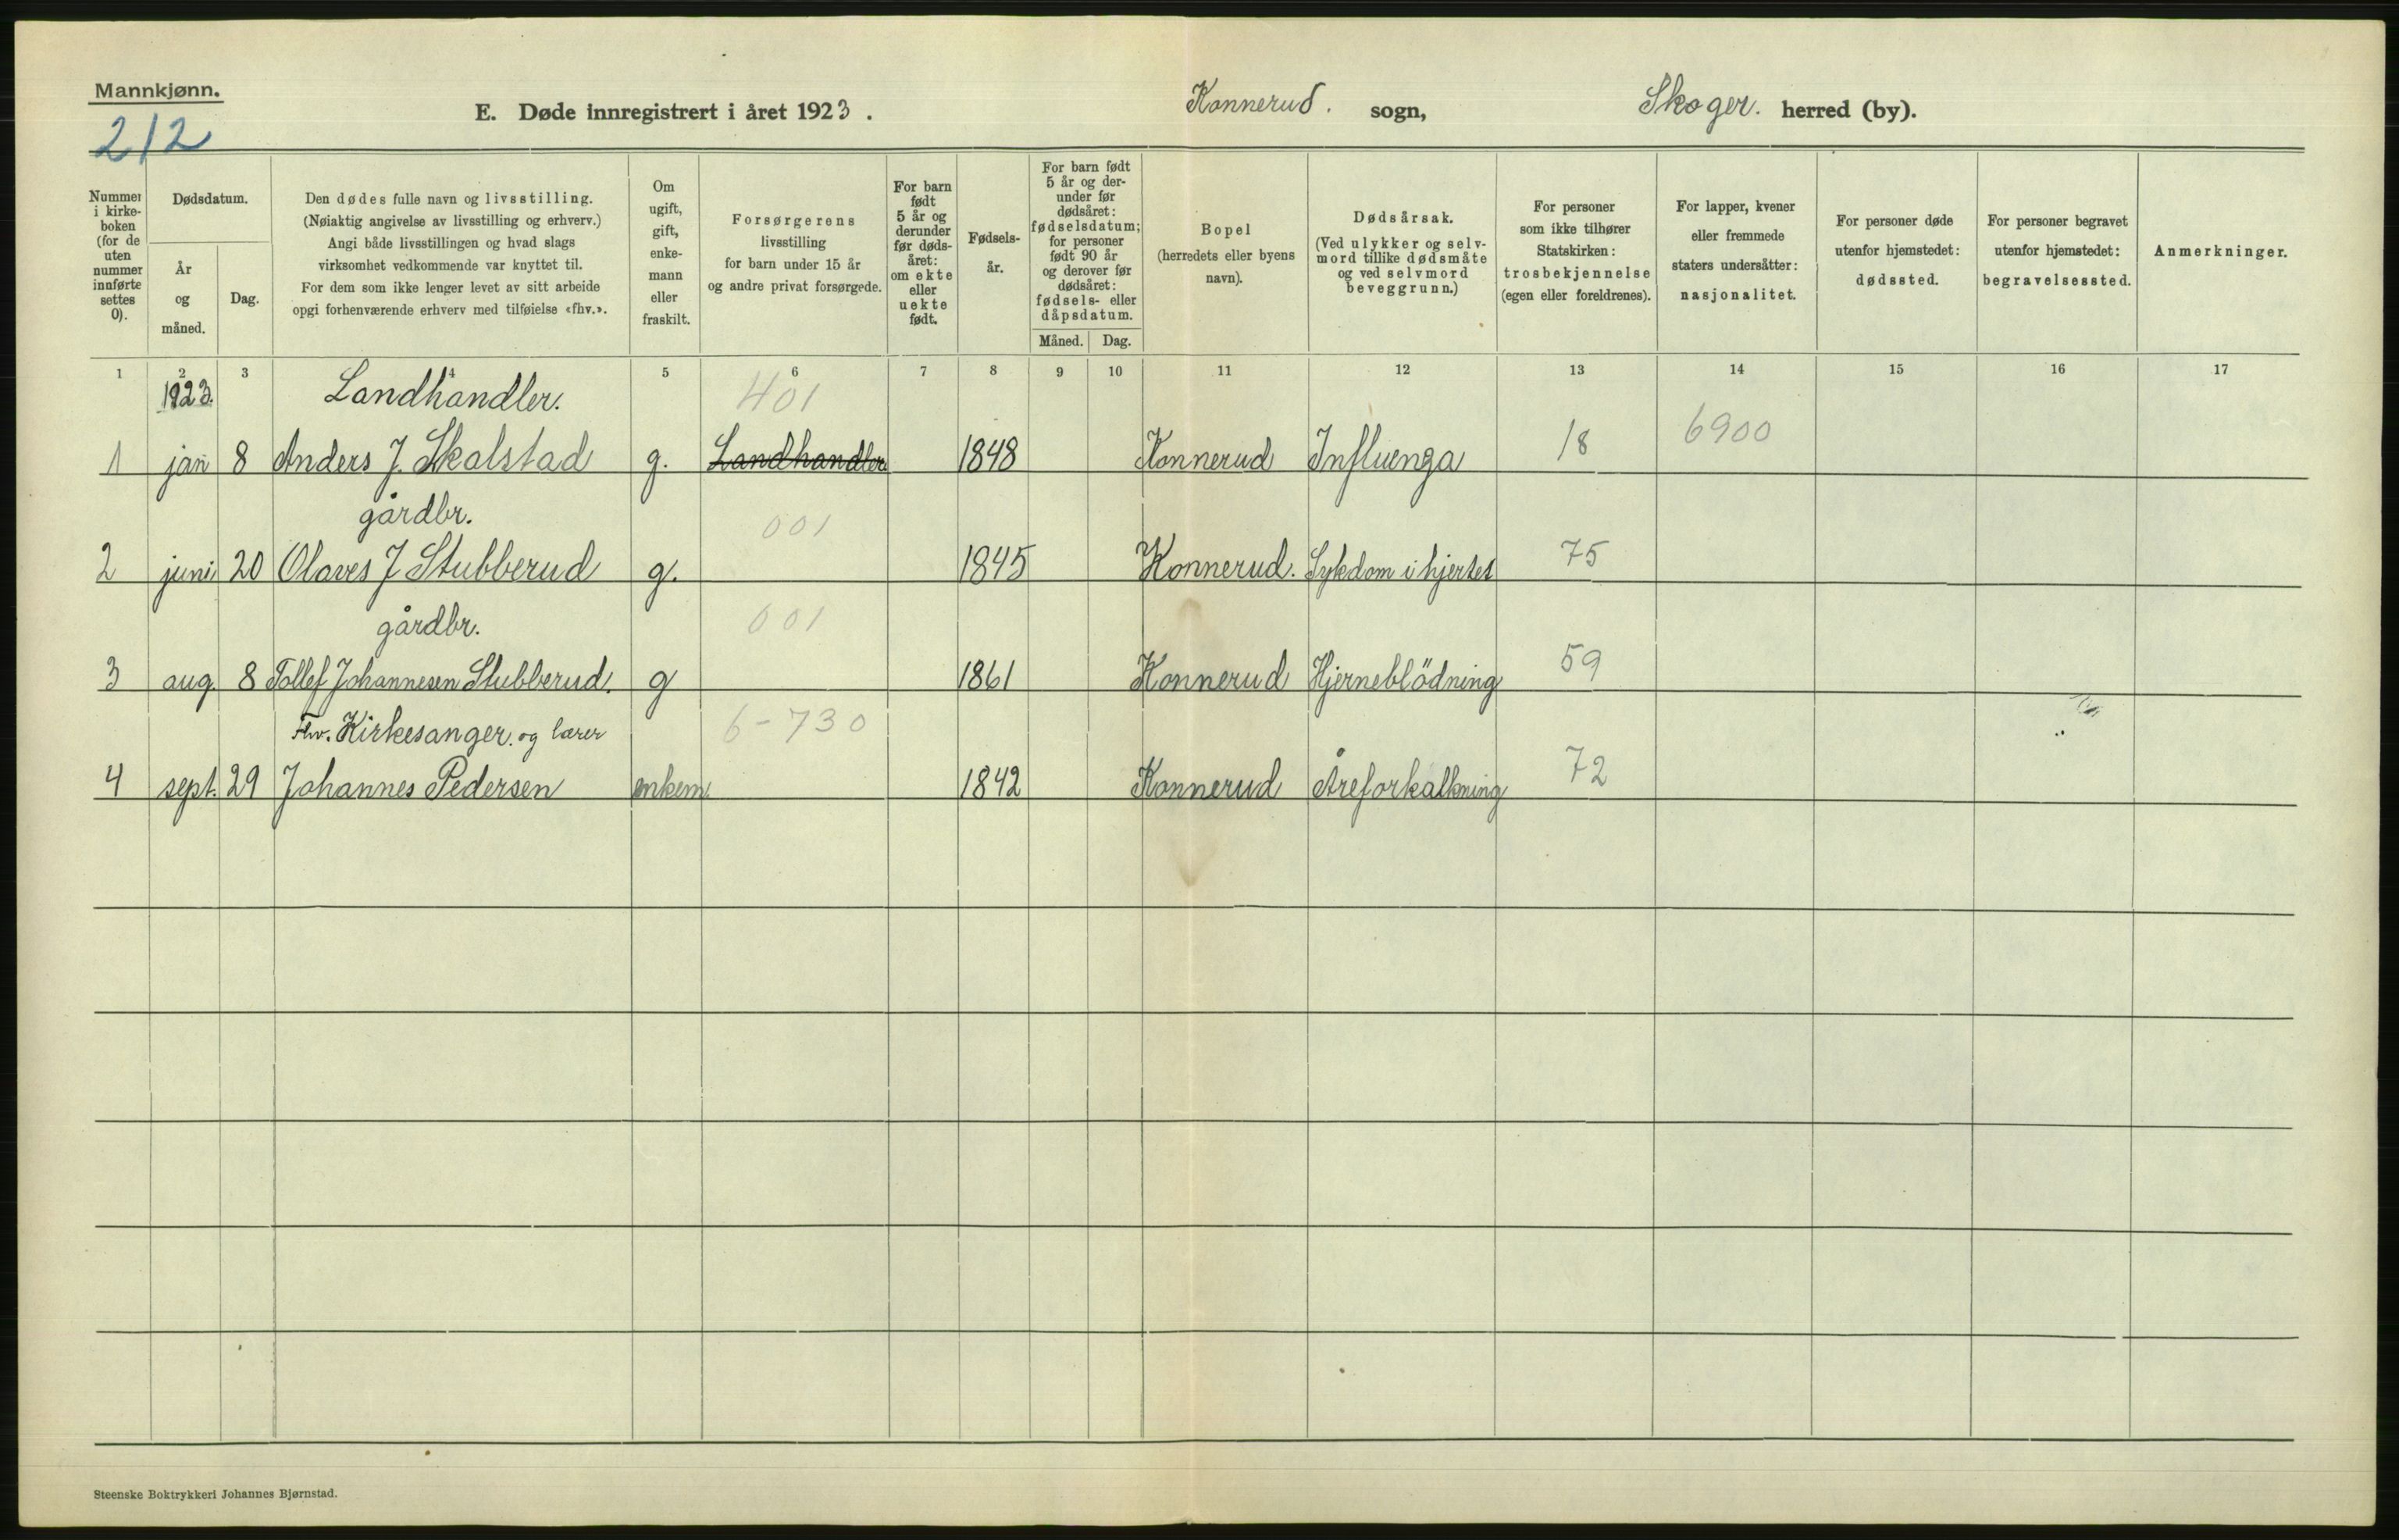 Mannkjønn.
212
E. Døde innregistrert i året 1923.
Konnerud. sogn,
Skoger. herred (by).
Nummer
i kirke-
boken
(for de
uten
nummer
innførte
settes
0).
Dødsdatum.
År
og
måned.
Dag.
Den dødes fulle navn og livsstilling.
(Nøiaktig angivelse av livsstilling og erhverv.)
Angi både livsstillingen og hvad slags
virksomhet vedkommende var knyttet til.
For dem som ikke lenger levet av sitt arbeide
opgi forhenværende erhverv med tilføielse «fhv.».
Om
ugift,
gift,
enke-
mann
eller
fraskilt.
Forsørgerens
livsstilling
for barn under 15 år
og andre privat forsørgede.
For barn
født
5 år og
derunder
før døds-
året:
om ekte
eller
uekte
født.
Fødsels-
år.
For barn født
5 år og der-
under før
dødsåret:
fødselsdatum;
for personer
født 90 år
og derover før
dødsåret:
fødsels- eller
dåpsdatum.
Måned. Dag.
Bopel
(herredets eller byens
navn).
Dødsårsak.
(Ved ulykker og selv-
mord tillike dødsmåte
og ved selvmord
beveggrunn.)
For personer
som ikke tilhører
Statskirken:
trosbekjennelse
(egen eller foreldrenes).
For lapper, kvener
eller fremmede
staters undersåtter:
nasjonalitet.
For personer døde
utenfor hjemstedet:
dødssted.
For personer begravet
utenfor hjemstedet:
begravelsessted.
Anmerkninger.
1 2 3 4 5 6 7 8 9 10 11 12 13 14 15 16 17
1923. Landhandler. 401
1 jan 8 Anders J. Skalstad g. Landhandler 1848 Konnerud Influenza 18 6900
gårdbr. 001
2 juni 20 Olaves J Stubberud g. 1845 Konnerud. Sykdom i hjertet 75
gårdbr. 001
3 aug. 8 Tollef Johannesen Stubberud. g 1861 Konnerud Hjerneblödning 59
Fhv. Kirkesanger. og lærer 6-730
4 sept. 29 Johannes Pedersen enkem 1842 Konnerud Åreforkalkning 72
Steenske Boktrykkeri Johannes Bjørnstad.